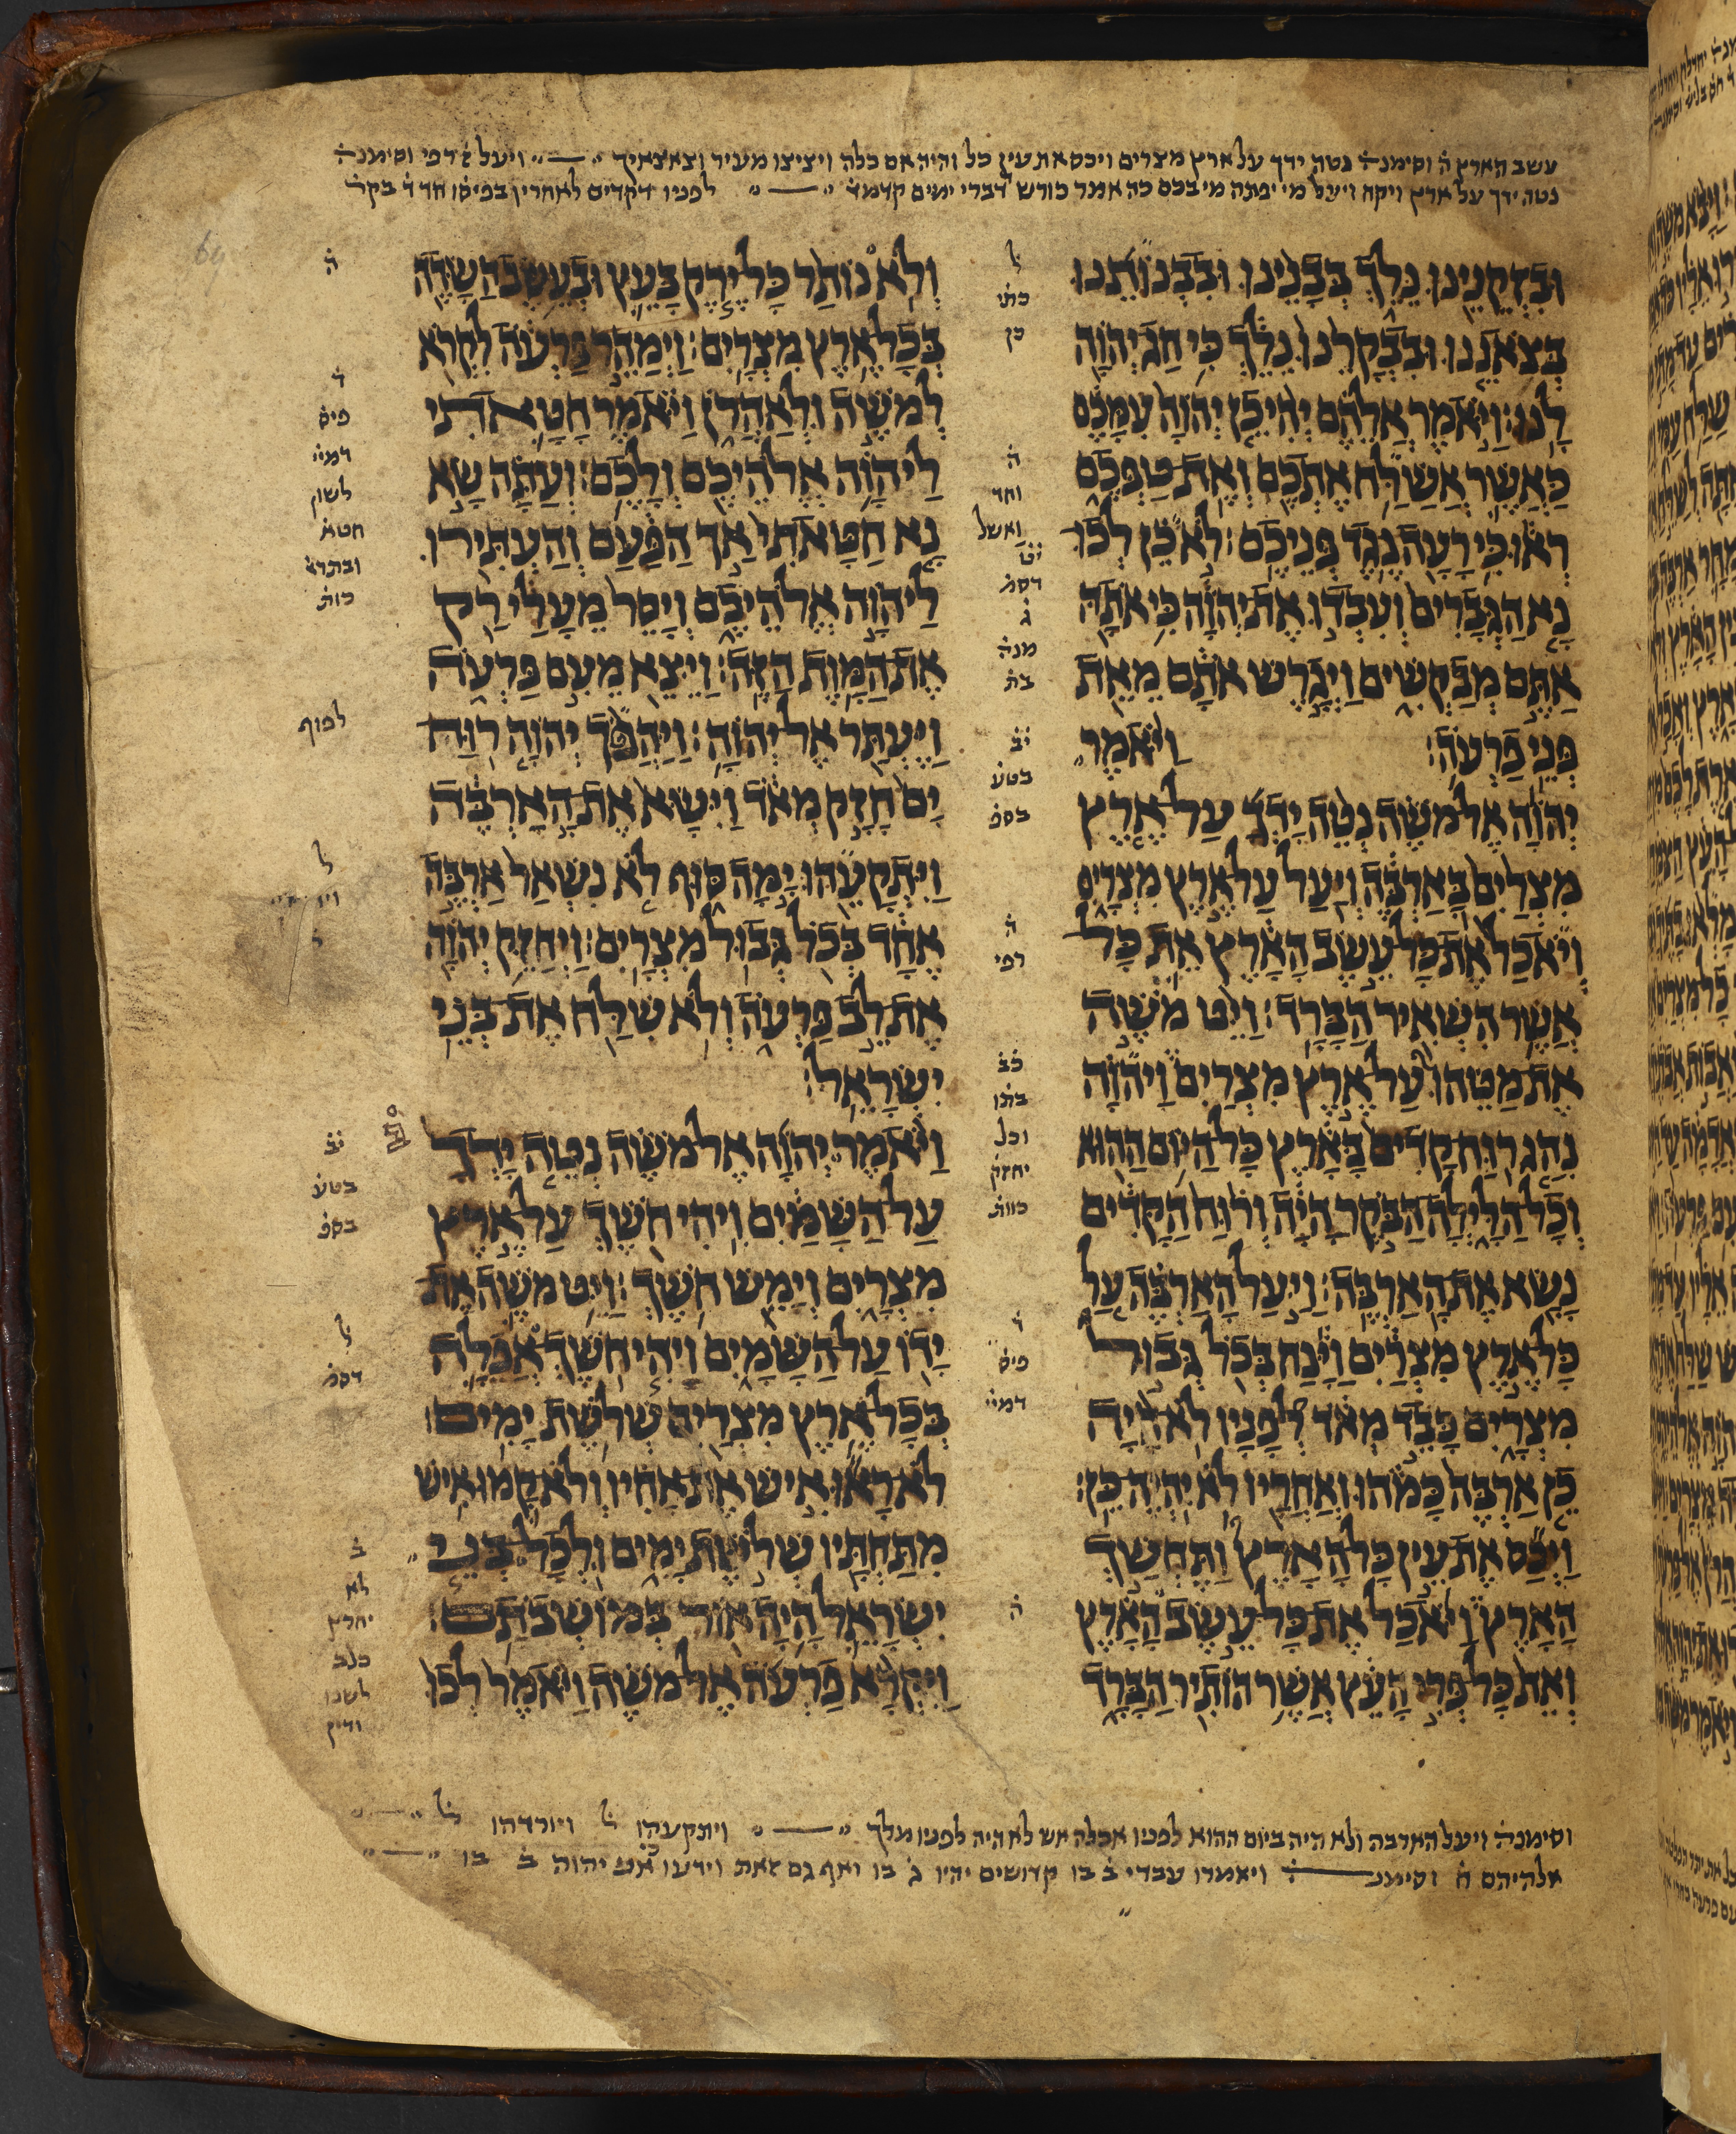 עשב הארץ ה וסימנה נטה ידך על ארץ מצרים ויכס את עין כל והיה אם כלה ויציצו מעיר וצאצאיך ויעל ז רפי וסימנה
נטה ידך על ארץ ויקח ויעל מי יפתה מי בכם כה אמר כורש דברי ימים קדמ לפניו דקדים לאחרין בפיס חד ד בקר
וּבִזְקֵנֵינוּ נֵלֵךְ בְּבָנֵינוּ וּבִבְנוֹתֵנוּ
בְּצֹאנֵנוּ וּבִבְקָרֵנוּ נֵלֵךְ כִּי חַג יְהוָה
לָנוּ׃ וַיֹּאמֶר אֲלֵהֶם יְהִי כֵן יְהוָה עִמָּכֶם
כַּאֲשֶׁר אֲשַׁלַּח אֶתְכֶם וְאֶת טַפְּכֶם
רְאוּ כִּי רָעָה נֶגֶד פְּנֵיכֶם׃ לֹא כֵן לְכוּ
נָא הַגְּבָרִים וְעִבְדוּ אֶת יְהוָה כִּי אֹתָהּ
אַתֶּם מְבַקְשִׁים וַיְגָרֶשׁ אֹתָם מֵאֵת
פְּנֵי פַרְעֹה׃ וַיֹּאמֶר
יְהוָה אֶל מֹשֶׁה נְטֵה יָדְךָ עַל אֶרֶץ
מִצְרַיִם בָּאַרְבֶּה וְיַעַל עַל אֶרֶץ מִצְרָיִם
וְיֹאכַל אֶת כָּל עֵשֶׂב הָאָרֶץ אֵת כָּל
אֲשֶׁר הִשְׁאִיר הַבָּרָד׃ וַיֵּט מֹשֶׁה
אֶת מַטֵּהוּ עַל אֶרֶץ מִצְרַיִם וַיהוָה
נִהַג רוּחַ קָדִים בָּאָרֶץ כָּל הַיּוֹם הַהוּא
וְכָל הַלָּיְלָה הַבֹּקֶר הָיָה וְרוּחַ הַקָּדִים
נָשָׂא אֶת הָאַרְבֶּה׃ וַיַּעַל הָאַרְבֶּה עַל
כָּל אֶרֶץ מִצְרַיִם וַיָּנַח בְּכֹל גְּבוּל
מִצְרָיִם כָּבֵד מְאֹד לְפָנָיו לֹא הָיָה
כֵן אַרְבֶּה כָּמֹהוּ וְאַחֲרָיו לֹא יִהְיֶה כֵּן׃
וַיְכַס אֶת עֵין כָּל הָאָרֶץ וַתֶּחְשַׁךְ
הָאָרֶץ וַיֹּאכַל אֶת כָּל עֵשֶׂב הָאָרֶץ
וְאֵת כָּל פְּרִי הָעֵץ אֲשֶׁר הוֹתִיר הַבָּרָד
ל
כתו
כן
ה
וחד
ואשל
יט
דסמ
ג
מנה
בת
יב
בטע
בספ
ה
רפי
כב
בתו
וכל
יחזק
כוות
ד
פיס
דמיי
ה
וְלֹא נוֹתַר כָּל יֶרֶק בָּעֵץ וּבְעֵשֶׂב הַשָּׂדֶה
בְּכָל אֶרֶץ מִצְרָיִם׃ וַיְמַהֵר פַּרְעֹה לִקְרֹא
לְמֹשֶׁה וּלְאַהֲרֹן וַיֹּאמֶר חָטָאתִי
לַיהוָה אֱלֹהֵיכֶם וְלָכֶם׃ וְעַתָּה שָׂא
נָא חַטָּאתִי אַךְ הַפַּעַם וְהַעְתִּירוּ
לַיהוָה אֱלֹהֵיכֶם וְיָסֵר מֵעָלַי רַק
אֶת הַמָּוֶת הַזֶּה׃ וַיֵּצֵא מֵעִם פַּרְעֹה
וַיֶּעְתַּר אֶל יְהוָה׃ וַיַּהֲפֹךְ יְהוָה רוּחַ
יָם חָזָק מְאֹד וַיִּשָּׂא אֶת הָאַרְבֶּה
וַיִּתְקָעֵהוּ יָמָּה סּוּף לֹא נִשְׁאַר אַרְבֶּה
אֶחָד בְּכֹל גְּבוּל מִצְרָיִם׃ וַיְחַזֵּק יְהוָה
אֶת לֵב פַּרְעֹה וְלֹא שִׁלַּח אֶת בְּנֵי
יִשְׂרָאֵל׃
וַיֹּאמֶר יְהוָה אֶל מֹשֶׁה נְטֵה יָדְךָ
עַל הַשָּׁמַיִם וִיהִי חֹשֶׁךְ עַל אֶרֶץ
מִצְרָיִם וְיָמֵשׁ חֹשֶׁךְ׃ וַיֵּט מֹשֶׁה אֶת
יָדוֹ עַל הַשָּׁמָיִם וַיְהִי חֹשֶׁךְ אֲפֵלָה
בְּכָל אֶרֶץ מִצְרַיִם שְׁלֹשֶׁת יָמִים׃
לֹא רָאוּ אִישׁ אֶת אָחִיו וְלֹא קָמוּ אִישׁ
מִתַּחְתָּיו שְׁלֹשֶׁת יָמִים וּלְכָל בְּנֵי
יִשְׂרָאֵל הָיָה אוֹר בְּמוֹשְׁבֹתָם׃
וַיִּקְרָא פַרְעֹה אֶל מֹשֶׁה וַיֹּאמֶר לְכוּ
ה
ד
פיס
דמיי
לשון
חטא
ובתרא
כות
לכוף
ל
ל
יב
בטע
בספ
ל
דסמ
ב
לא
יחרץ
כלב
לשנו
ודין
וסימנה ויעל הארבה ולא היה ביום ההוא לפניו אכלה אש לא היה לפניו מלך ויתקעהו ל ויורדהו ל
אלהיהם ה וסימנ ויאמרו עבדי ב בו קדושים יהיו ג בו ואף גם זאת וידעו כי אני יהוה ב בו